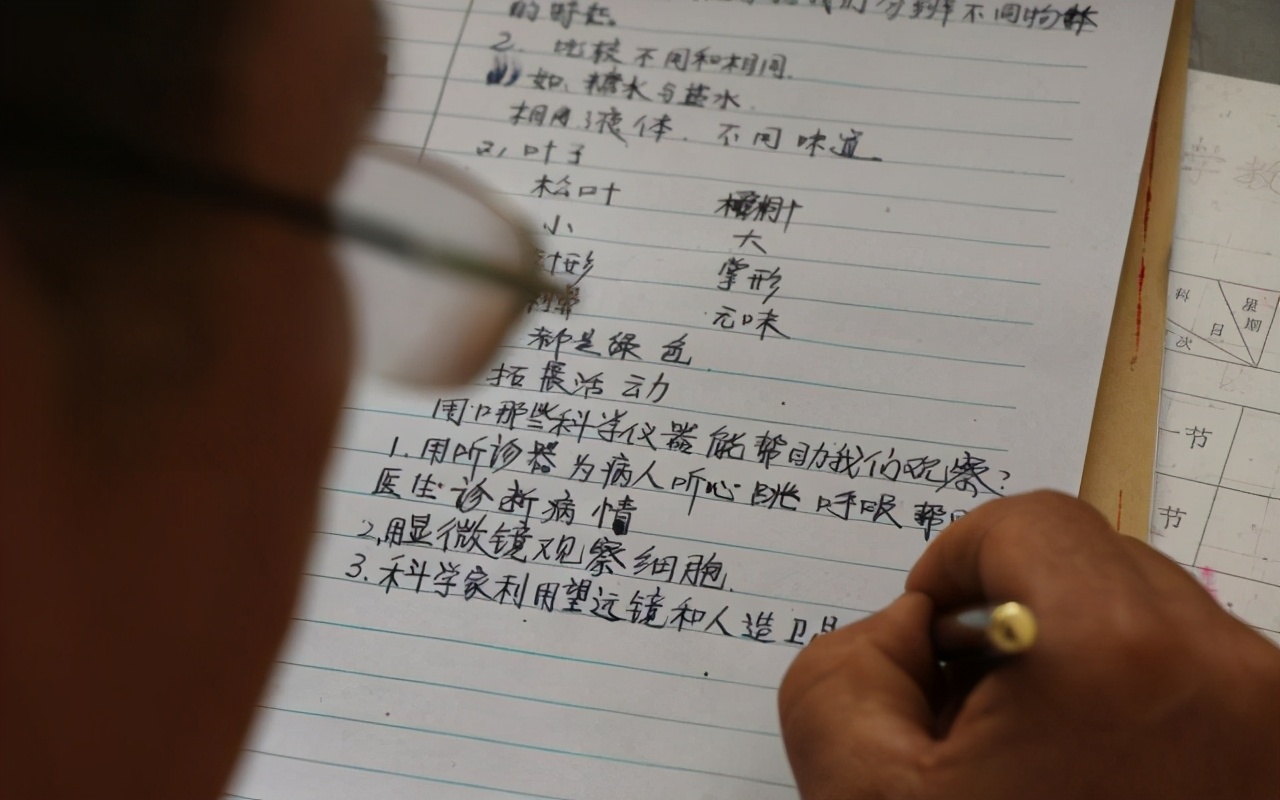 我们分辨不同物体
的时候。
2. 比较不同和相同.
(1) 如: 糖水与盐水.
相同: 液体. 不同 味道。
2, 叶子
松叶
小 大
针形 掌形
无味
都是绿色.
拓展活动
用哪些科学仪器能帮助我们观察?
1. 用听诊器为病人听心跳呼吸帮
医生诊断病情
2, 用显微镜观察细胞.
3. 科学家利用望远镜和人造卫星
学 教
科 星期
日
次
一节
节